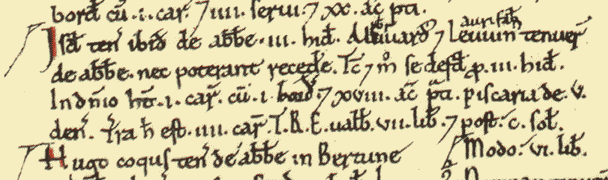 bord cu. i. car. ⁊ iiii. serui. ⁊ xx. ac pti.
Isd ten ibid de abbe. iii. hid. Aluuard ⁊ Leuuin aurifab tenuer
de abbe. nec poterant recede. Tc ⁊ m se defd p. iii. hid.
In dnio ht. i. car. cu. i. bord. ⁊ xviii. ac pti. piscaria de. v.
den. Tra h est. iiii. car. T.R.E. ualb. vii. lib. ⁊ post. c. sol.
Hugo coqus ten de abbe in Bertune Modo. vi. lib.